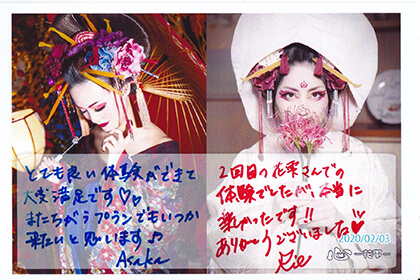 とても良い体験ができて
大変満足です♡♡
またちがうプランでもいつか
来たいと思います♪
Asaka
2回目の花雫さんでの
体験でしたが、本当に
楽しかったです!!
ありがとうございました♡
Rie
2020/02/03